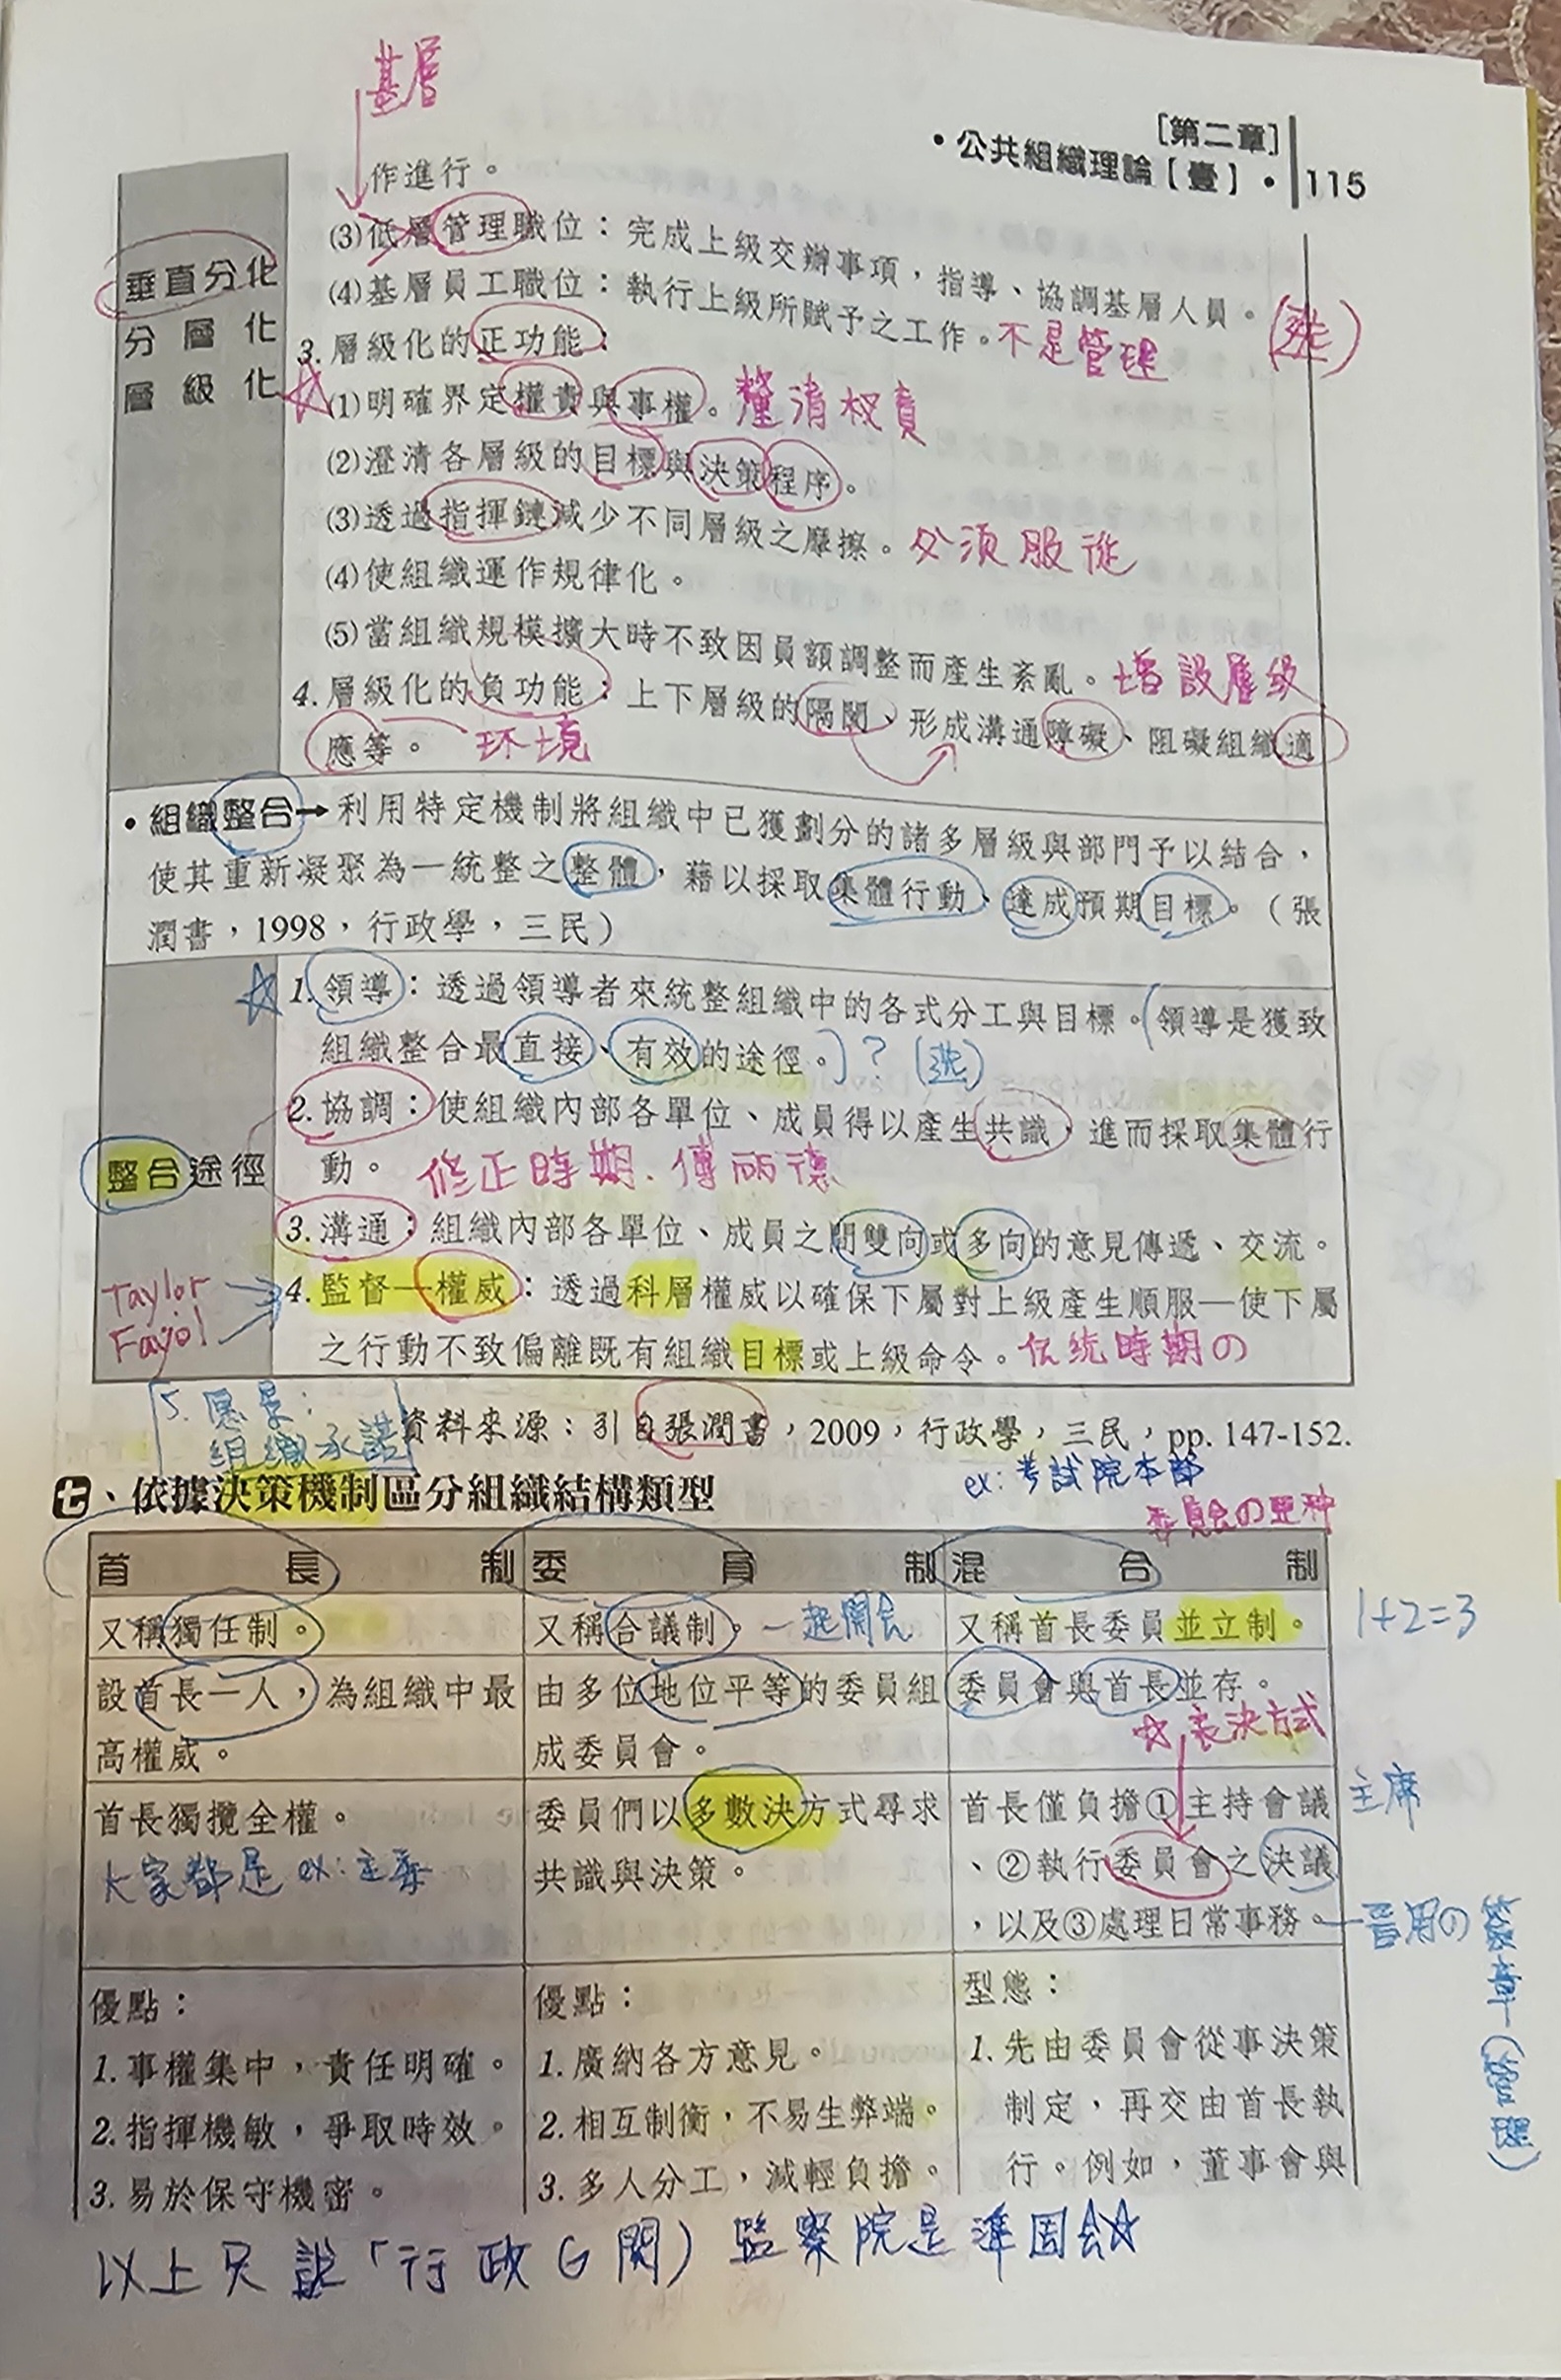 基層
[第二章]
•公共組織理論【壹】• 115
作進行。
(3)低層管理職位：完成上級交辦事項，指導、協調基層人員。(選)
垂直分化
分層化
層級化
(4)基層員工職位：執行上級所賦予之工作。不是管理
3.層級化的正功能：
(1)明確界定權責與事權。釐清权責
(2)澄清各層級的目標與決策程序。
(3)透過指揮鏈減少不同層級之摩擦。必須服從
(4)使組織運作規律化。
(5)當組織規模擴大時不致因員額調整而產生紊亂。增設層級
4.層級化的負功能：上下層級的隔閡、形成溝通障礙、阻礙組織適
應等。 环境
•組織整合→利用特定機制將組織中已獲劃分的諸多層級與部門予以結合，
使其重新凝聚為一統整之整體，藉以採取集體行動、達成預期目標。（張
潤書，1998，行政學，三民）
整合途徑
1.領導：透過領導者來統整組織中的各式分工與目標。(領導是獲致
組織整合最直接、有效的途徑。)？(選)
2.協調：使組織內部各單位、成員得以產生共識，進而採取集體行
動。 修正時期、傅麗德
3.溝通：組織內部各單位、成員之間雙向或多向的意見傳遞、交流。
Taylor
Fayol
4.監督—權威：透過科層權威以確保下屬對上級產生順服—使下屬
之行動不致偏離既有組織目標或上級命令。伝統時期の
5.愿景：
組織承諾
資料來源：引自張潤書，2009，行政學，三民，pp. 147-152.
ex:考試院本部
七、依據決策機制區分組織結構類型
委員会の亜种
首長制 委員制 混合制
又稱獨任制。 又稱合議制。一起開会 又稱首長委員並立制。 1+2=3
設首長一人，為組織中最 由多位地位平等的委員組 委員會與首長並存。
高權威。 成委員會。 ☆表決方式
首長獨攬全權。 委員們以多數決方式尋求 首長僅負擔①主持會議 主席
大家都是 ex:主委 共識與決策。 、②執行委員會之決議
，以及③處理日常事務。
(管理)
優點： 優點： 型態：
1.事權集中，責任明確。 1.廣納各方意見。 1.先由委員會從事決策
2.指揮機敏，爭取時效。 2.相互制衡，不易生弊端。 制定，再交由首長執
3.易於保守機密。 3.多人分工，減輕負擔。 行。例如，董事會與
以上只說「行政G関) 監察院是準国会☆